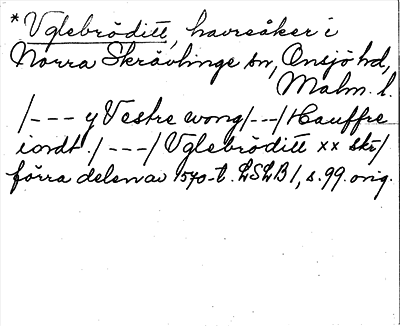 *Vglebröditt, havreåker i
Norra Skrävlinge sn, Onsjö hd,
Malm. l.
/--- y Vestre wong/---/ Hauffre
iordt./---/ Vglebröditt xx skr/
förra delen av 1570-t. LSLB 1, s. 99. orig.